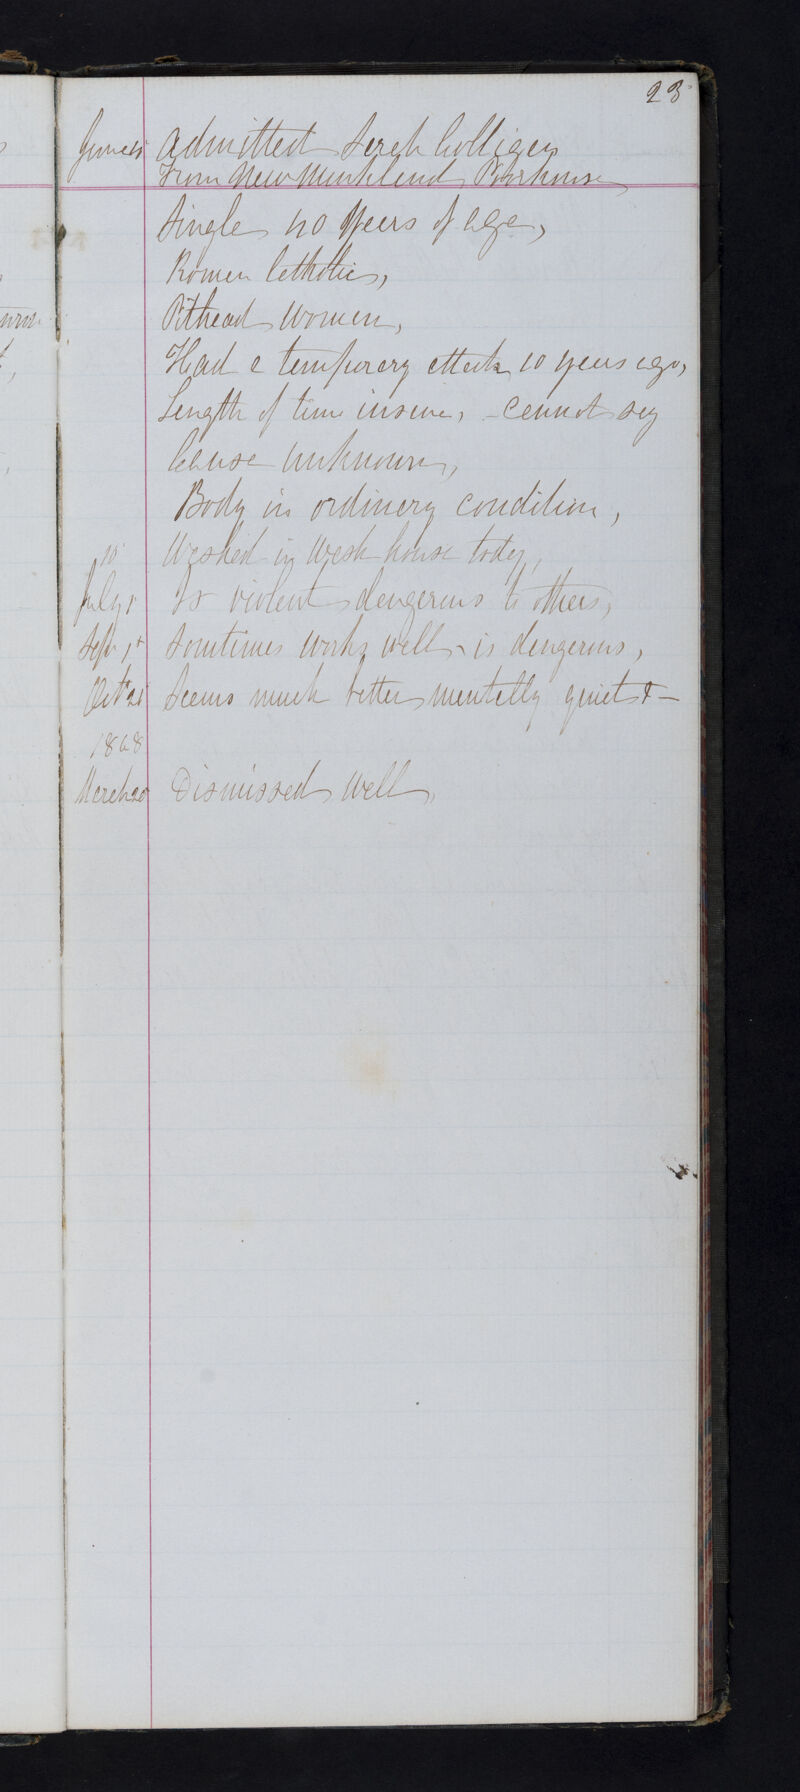 23
June 15 Admitted Sarah Colligan
From New Monkland Poorhouse
Single 40 Years of age,
Roman Catholic,
Pithead Woman,
Had a temporary attack 10 years ago,
Length of time insane, - cannot say
Cause unknown,
Body in ordinary condition,
Washed in Wash house today,
July 1 Is violent dangerous to others,
Sept 1st Sometimes works well - is dangerous,
Octr 21 Seems much better mentally quiet & -
1868
March 20 Dismissed Well,